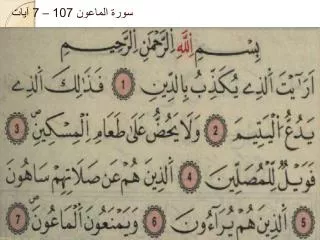 سورة الماعون 107 – 7 آيات
بِسْمِ اِللَّهِ اِلرَّحْمَٰنِ اِلرَّحِيمِ
اَرَٰيْتَ اَلَّذِے يُكَذِّبُ بِالدِّينِ 1 فَذَٰلِكَ اَلَّذِے
يَدُعُّ اُلْيَتِيمَ 2 وَلَا يَحُضُّ عَلَىٰ طَعَامِ اِلْمِسْكِينِ 3
فَوَيْلٌ لِّلْمُصَلِّينَ 4 اَلَّذِينَ هُمْ عَن صَلَاتِهِمْ سَاهُونَ
5 اَلَّذِينَ هُمْ يُرَآءُونَ 6 وَيَمْنَعُونَ اَلْمَاعُونَ 7